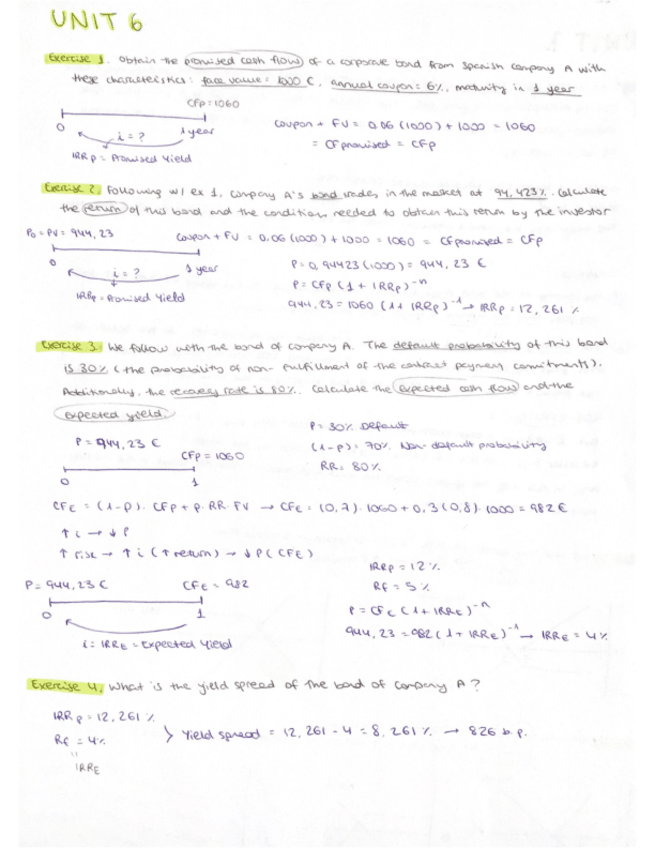 UNIT 6
Exercise 1. Obtain the promised cash flow of a corporate bond from Spanish company A with
these characteristics: face value = 1000 €, annual coupon = 6%, maturity in 1 year
CFp = 1060
0
i = ?
1 year
IRRp = Promised Yield
Coupon + FV = 0.06 (1000) + 1000 = 1060
= CFpromised = CFp
Exercise 2. Following w/ ex 1, company A's bond trades in the market at 94,423%. Calculate
the return of this bond and the conditions needed to obtain this return by the investor
P0 = PV = 944,23
0
i = ?
1 year
IRRp = Promised Yield
Coupon + FV = 0.06 (1000) + 1000 = 1060 = CFpromised = CFp
P = 0,94423 (1000) = 944,23 €
P = CFp (1 + IRRp)^-n
944,23 = 1060 (1 + IRRp)^-1 → IRRp = 12,261 %
Exercise 3. We follow with the bond of company A. The default probability of this bond
is 30% (the probability of non-fulfillment of the contract payment commitments).
Additionally, the recovery rate is 80%. Calculate the expected cash flow and the
expected yield.
P = 944,23 €
CFp = 1060
0
1
P = 30% Default
(1-p) = 70% Non-default probability
RR = 80%
CFE = (1-p) · CFp + p · RR · FV → CFE = (0,7) · 1060 + 0,3 (0,8) · 1000 = 982 €
↑ i → ↓ P
↑ risk → ↑ i (↑ return) → ↓ P (CFE)
P = 944,23 €
CFE = 982
0
1
i = IRRE = Expected Yield
IRRp = 12%
Rf = 5%
P = CFE (1 + IRRE)^-n
944,23 = 982 (1 + IRRE)^-1 → IRRE = 4%
Exercise 4. What is the yield spread of the bond of company A?
IRRp = 12,261 %
Rf = 4%
"
IRRE
Yield spread = 12,261 - 4 = 8,261 % → 826 b.p.